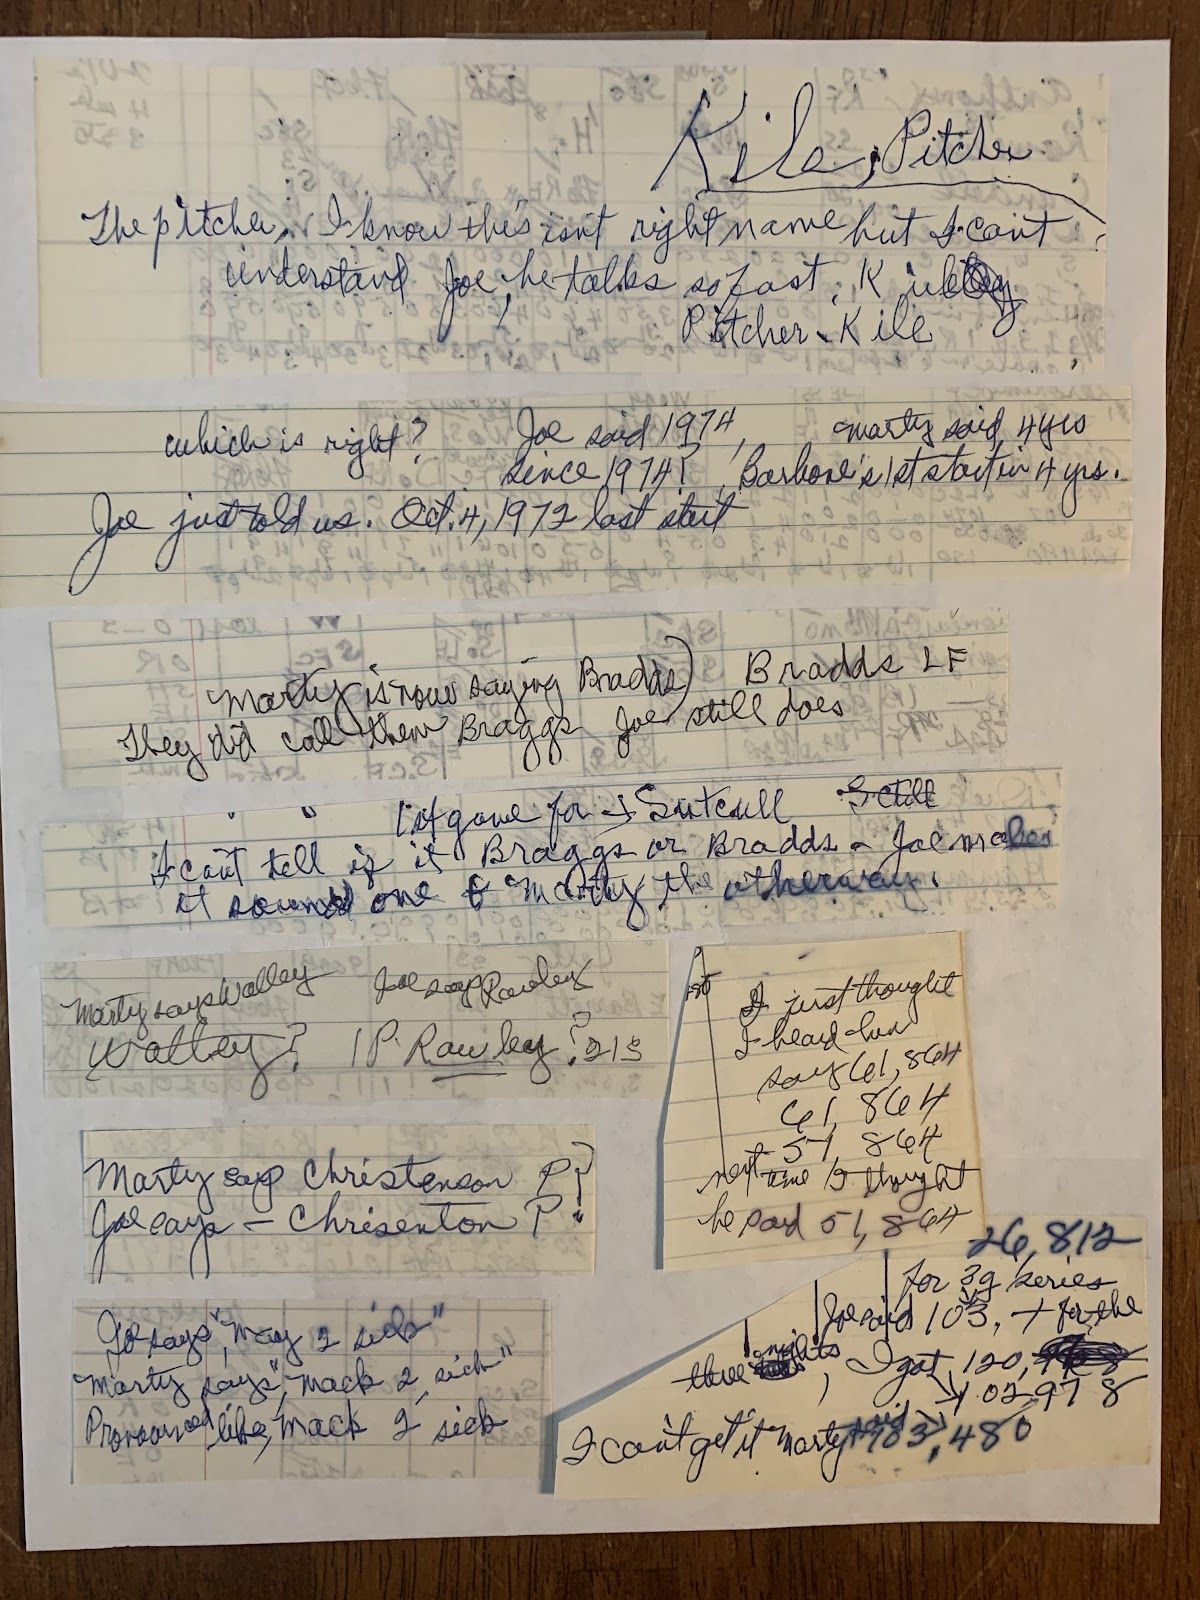 Kile, Pitcher
The pitcher, I know this isnt right name but I can't
understand Joe, he talks so fast, K
Pitcher - Kile
which is right? Joe said 1974, Marty said 4 yrs
since 1974? Barbone's 1st start in 4 yrs.
Joe just told us. Oct. 4, 1972 last start
Marty is now saying Bradds) Bradds LF
They did call them Braggs Joe still does
" " 1st game for Sutcull
I can't tell if it Braggs or Bradds - Joe makes
it sound one & Marty the otherway.
Marty says Walley Joe says Rawley
Walley? P. Rawley? 213
Marty says Christenson P?
Joe says - Chrisenton P?
Joe says, "May 2 sick"
Marty says, "Mack 2, sick"
Pronounced like, Mack 2, sick
I just thought
I heard him
say 61,864
61,864
57 864
next time I thought
he said 51,864
26,812
for 3g series
Joe said 103, + for the
three nights, I got 120,
102,978
I can't get it Marty said 103,480